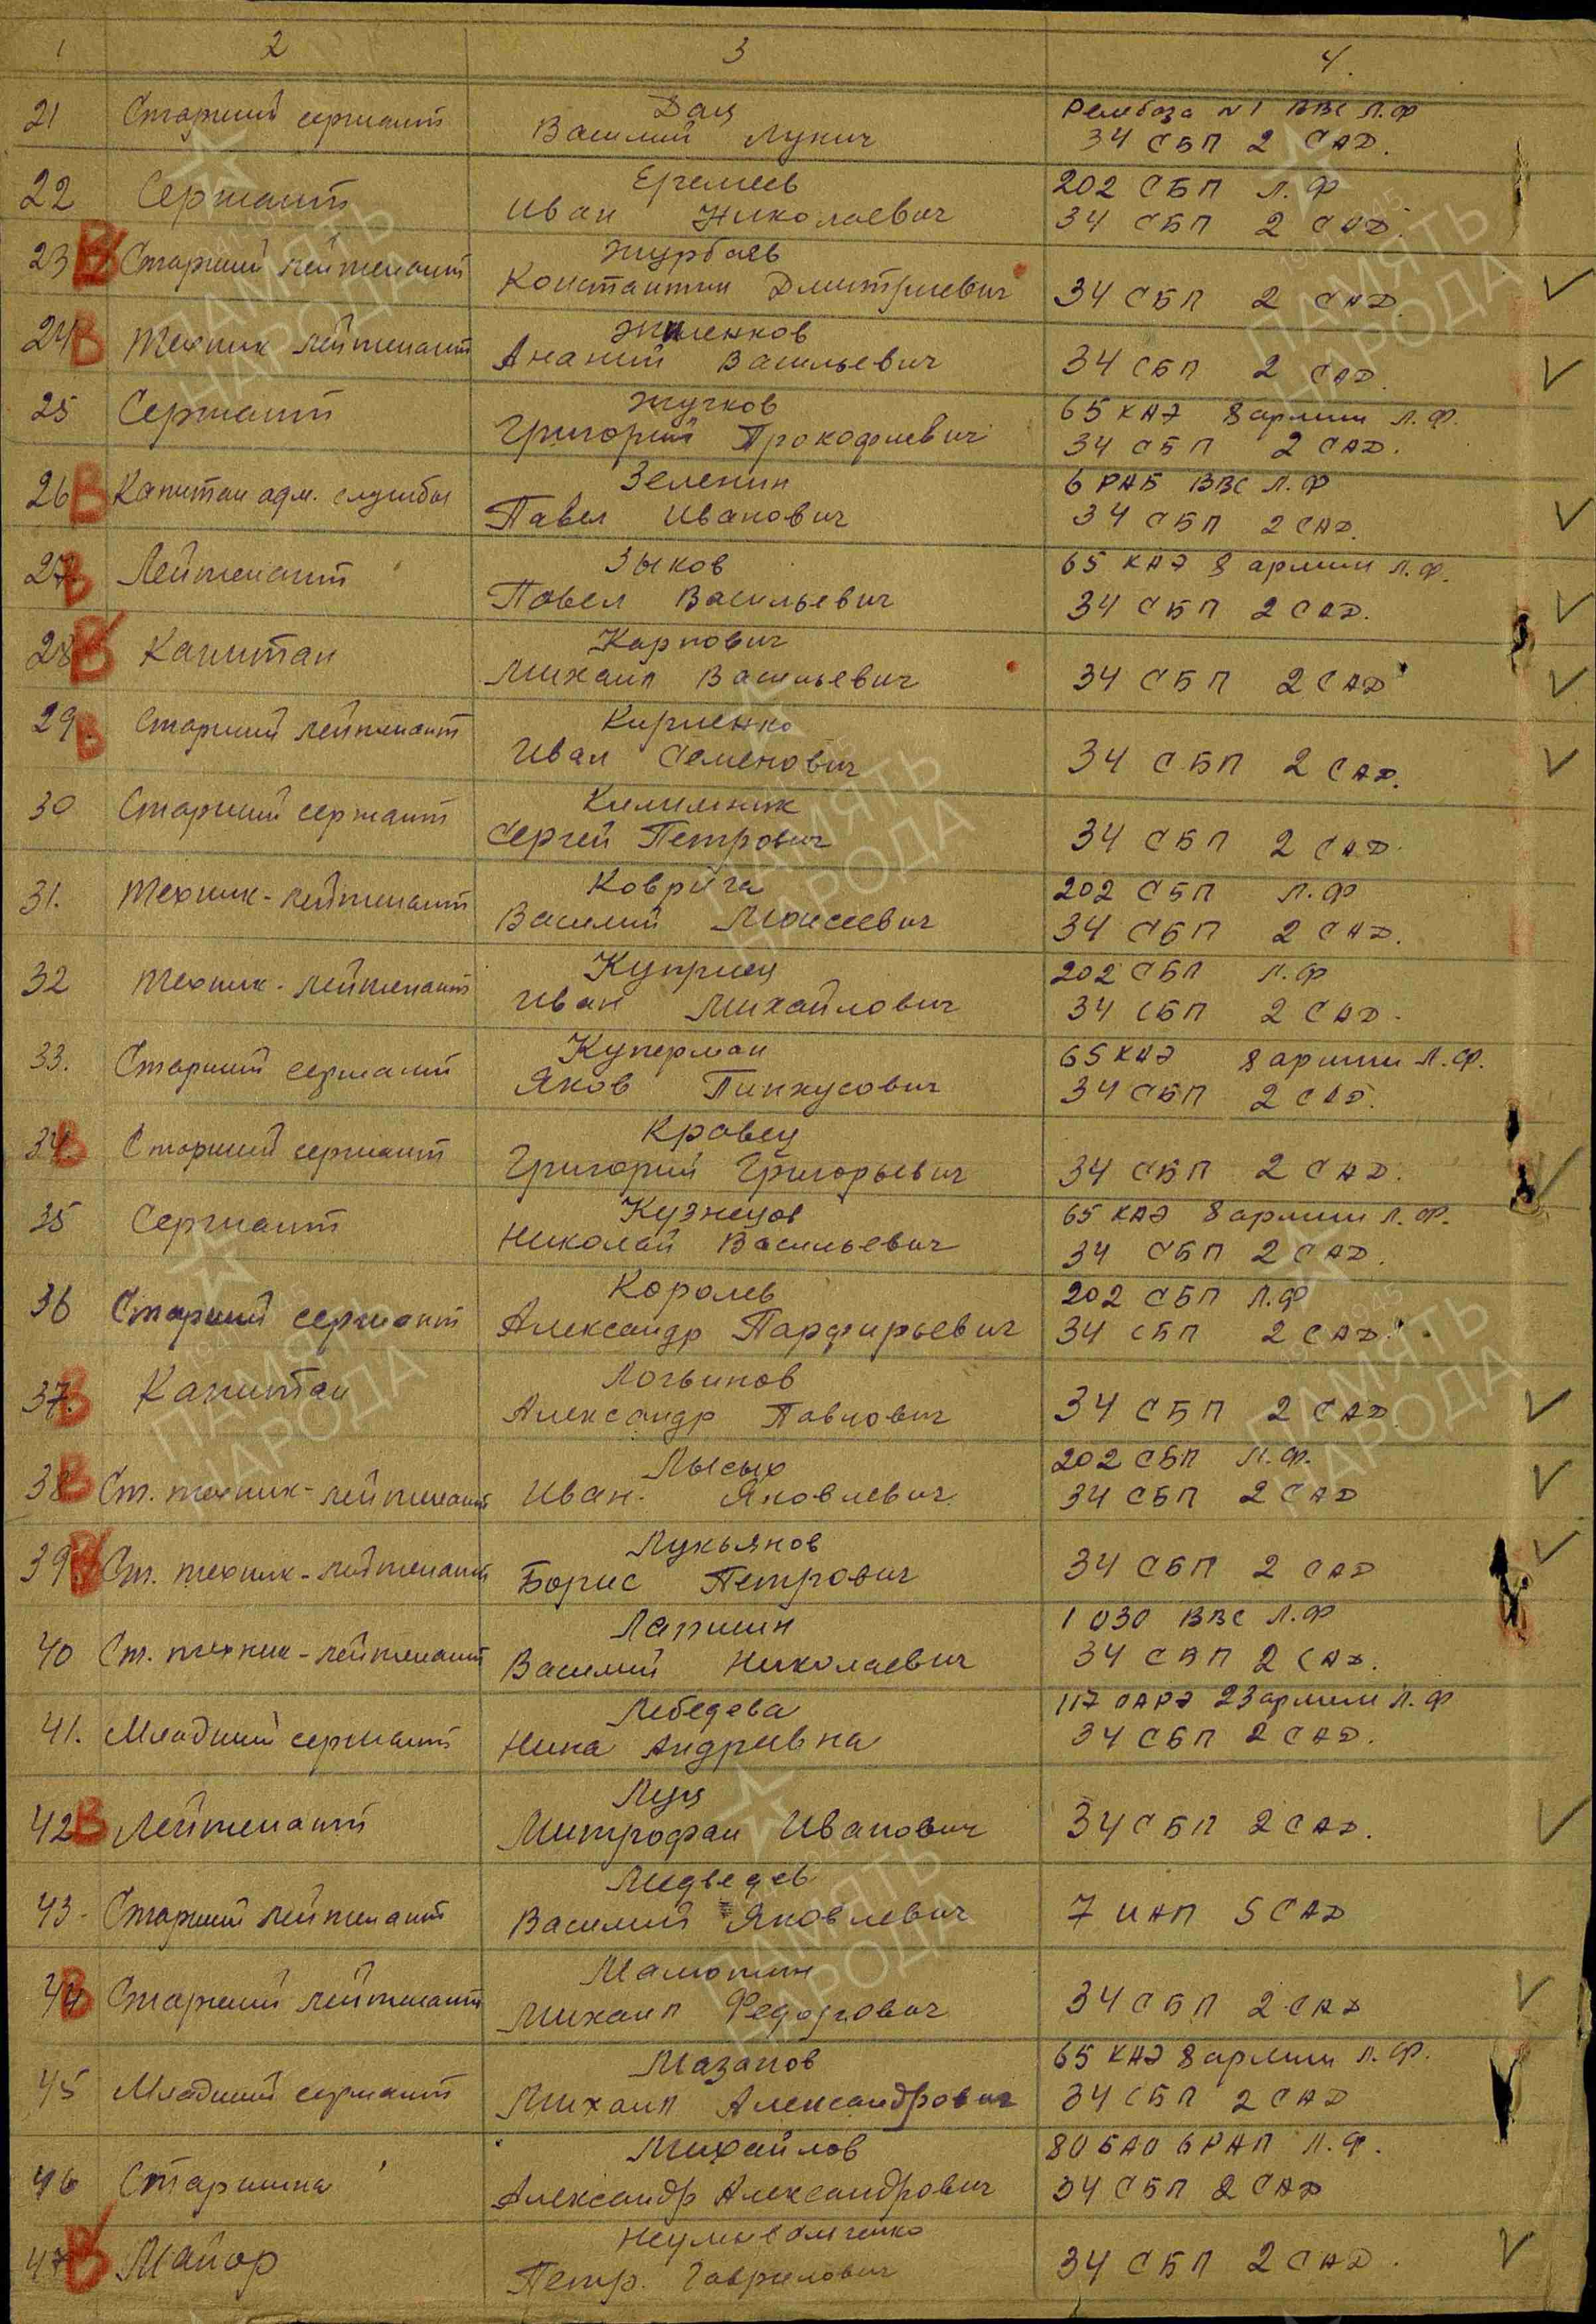 1 2 3 4.
21 Старший сержант Дац Рембаза №1 ВВС Л.Ф
Василий Лукич 34 СБП 2 САД.
22 Сержант Еремеев 202 СБП Л.Ф
Иван Николаевич 34 СБП 2 САД.
23 В Старший лейтенант Журбаев
Константин Дмитриевич 34 СБП 2 САД.
24 В Техник лейтенант Жиленков
Ананий Васильевич 34 СБП 2 САД.
25 Сержант Жучков 65 КАЭ 8 армии Л.Ф.
Григорий Прокофиевич 34 СБП 2 САД.
26 В Капитан адм. службы Зеленин 6 РАБ ВВС Л.Ф
Павел Иванович 34 СБП 2 САД.
27 В Лейтенант Зыков 65 КАЭ 8 армии Л.Ф.
Павел Васильевич 34 СБП 2 САД.
28 В Капитан Карпович
Михаил Васильевич 34 СБП 2 САД
29. В Старший лейтенант Кириенко
Иван Семенович 34 СБП 2 САД.
30 Старший сержант Килимник
Сергей Петрович 34 СБП 2 САД.
31. Техник-лейтенант Коврига 202 СБП Л.Ф
Василий Моисеевич 34 СБП 2 САД.
32 Техник-лейтенант Куприец 202 СБП Л.Ф
Иван Михайлович 34 СБП 2 САД.
33. Старший сержант Куперман 65 КАЭ 8 армии Л.Ф.
Яков Пинхусович 34 СБП 2 САД.
34 В Старший сержант Кравец
Григорий Григорьевич 34 СБП 2 САД.
35 Сержант Кузнецов 65 КАЭ 8 армии Л.Ф.
Николай Васильевич 34 СБП 2 САД.
36 Старший сержант Королев 202 СБП Л.Ф
Александр Парфирьевич 34 СБП 2 САД.
37. В Капитан Логвинов
Александр Павлович 34 СБП 2 САД.
38 В Ст. техник-лейтенант Лысых 202 СБП Л.Ф.
Иван. Яковлевич 34 СБП 2 САД
39. В Ст. техник-лейтенант Лукьянов
Борис Петрович 34 СБП 2 САД
40 Ст. техник-лейтенант Лапшин 1 030 ВВС Л.Ф
Василий Николаевич 34 СБП 2 САД.
41. Младший сержант Лебедева 117 ОАРЭ 23 армии Л.Ф
Нина Андриевна 34 СБП 2 САД.
42 В Лейтенант Луц
Митрофан Иванович 34 СБП 2 САД.
43- Старший лейтенант Медведев
Василий Яковлевич 7 ИАП 5 САД
44 В Старший лейтенант Малютин
Михаил Федорович 34 СБП 2 САД
45 Младший сержант Мазанов 65 КАЭ 8 армии Л.Ф.
Михаил Александрович 34 СБП 2 САД
46 Старшина Михайлов 80 БАО 6 РАП Л.Ф.
Александр Александрович 34 СБП 2 САД
47 В Майор
Петр. Гаврилович 34 СБП 2 САД.
ПАМЯТЬ НАРОДА
1941-1945